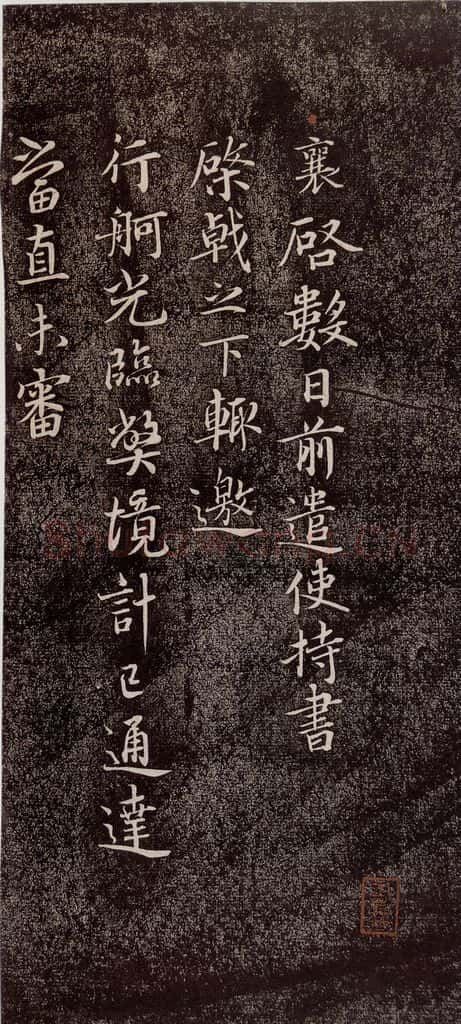 襄啓數日前遣使持書
棨戟之下輙邀
行舸光臨獘境計已通達
當直未審